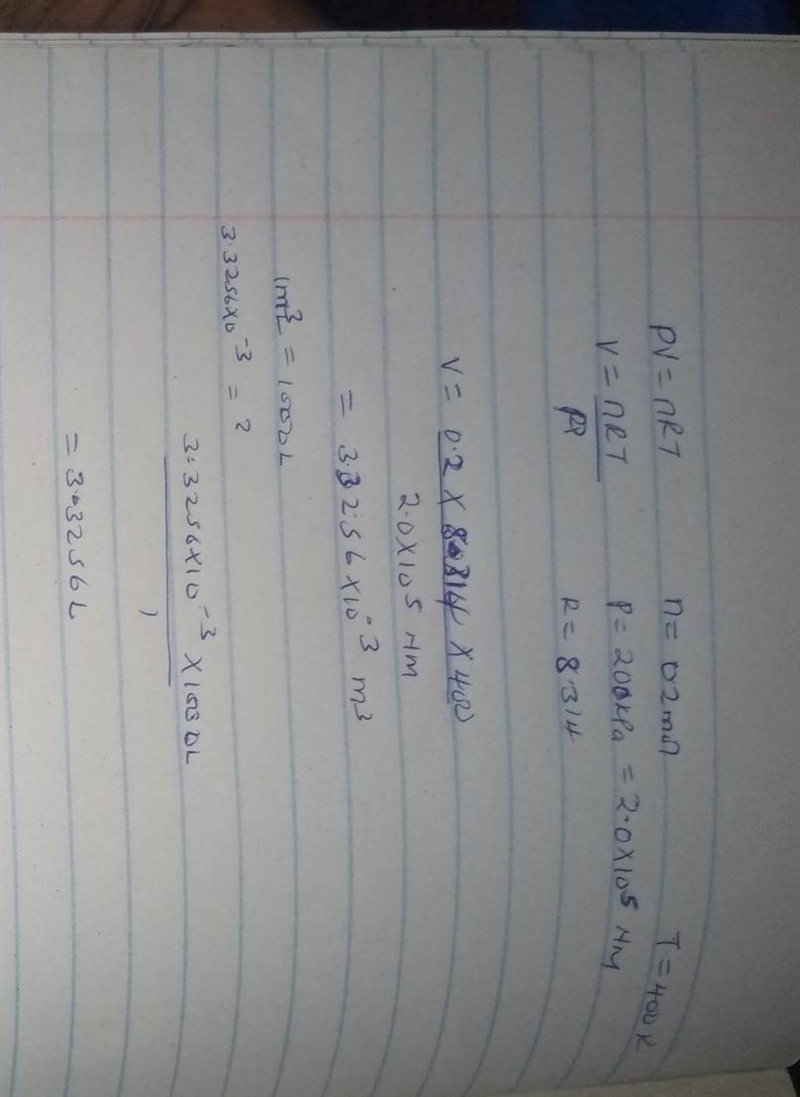 PV = nRT n = 0.2mol T = 400K
V = nRT P = 200kPa = 2.0x10⁵ NM
P R = 8.314
V = 0.2 x 8.314 x 400
2.0x10⁵ NM
= 3.3256x10⁻³ m³
1m³ = 1000L
3.3256x10⁻³ = ?
3.3256x10⁻³ x 1000L
1
= 3.3256L